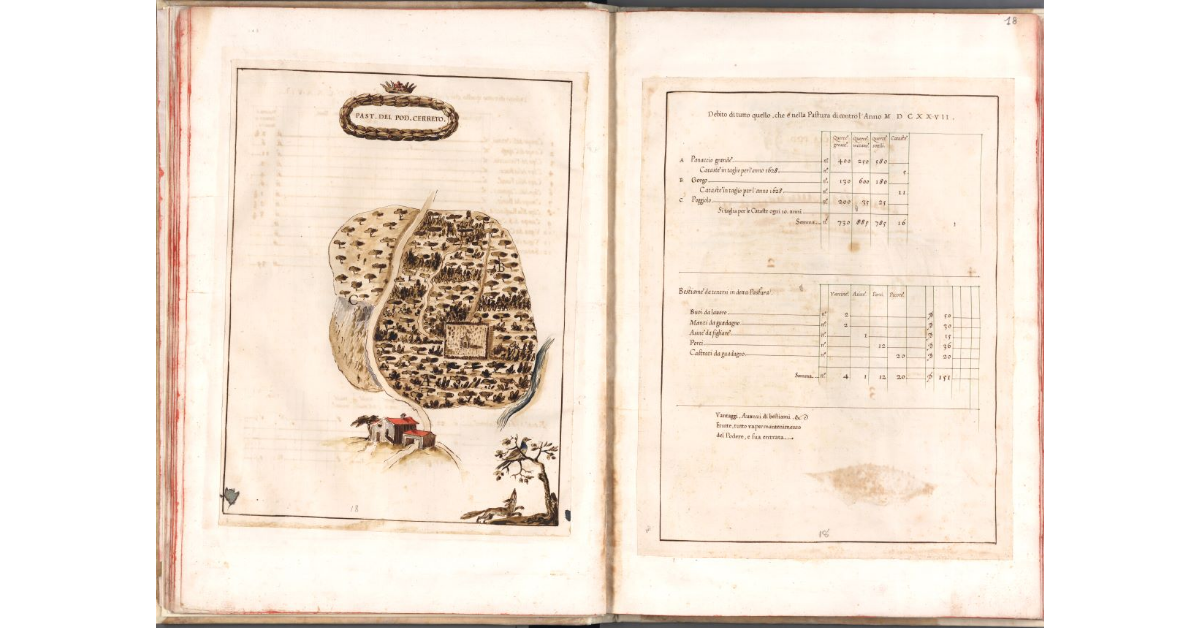 PAST. DEL POD. CERRETO.
B
C
18
18
Debito di tutto quello, che é nella Pastura di contro l'Anno M D C XX VII.
Querc. grand. Querc. mezane Querc. picole Cataste
A Panaccio grande n. 400 250 580
Cataste in taglio per l'anno 1628. n. 5
B Gorgo n. 130 600 180
Cataste in taglio per l'anno 1628. n. 11
C Poggiolo n. 200 35 25
Si taglia per le Cataste ogni 10. anni
Somma n. 730 885 785 16
Bestiame da tenersi in detta Pastura
Vaccine Asine Porci Pecore
Buoi da lavoro n. 2 50
Manzi da guadagno n. 2 30
Asine da figliare n. 1 15
Porci n. 12 36
Castrati da guadagno n. 20 20
Somma n. 4 1 12 20 151
Vantaggi, Aumenti di bestiami, &c
frutte, tutto va per mantenimento
del Podere, e sua entrata
18